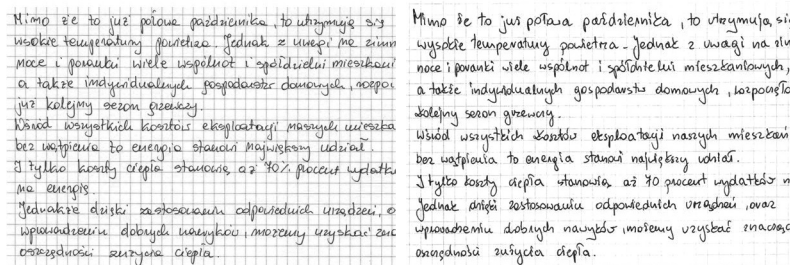 Mimo że to już połowa października, to utrzymują się
wsokie temperatury powietrza. Jednak z uwagi na zimn
noce i poranki wiele wspólnot i spółdzielni mieszkani
a także indywidualnych gospodarstw domowych, rozpoc
już kolejny sezon grzewczy.
Wśród wszystkich kosztów eksploatacji naszych mieszka
bez wątpienia to energia stanowi największy udział.
I tylko koszty ciepła stanowią aż 70% procent wydatkó
na energię.
Jednakże dzięki zastosowaniu odpowiednich urządzeń, o
wprowadzeniu dobrych nawyków, możemy uzyskać znac
oszczędności zużycia ciepła.
Mimo że to już połowa października, to utrzymują, się
wysokie temperatury powietrza. Jednak z uwagi na zim
noce i poranki wiele wspólnot i spółdzielni mieszkaniowych,
a także indywidualnych gospodarstw domowych, rozpoczęło
kolejny sezon grzewczy.
Wśród wszystkich kosztów eksploatacji naszych mieszkań
bez wątpienia to energia stanowi największy udział.
I tylko koszty ciepła stanowią aż 70 procent wydatków n
Jednak dzięki zastosowaniu odpowiednich urządzeń, oraz
wprowadzeniu dobrych nawyków, możemy uzyskać znacząc
oszczędności zużycia ciepła.